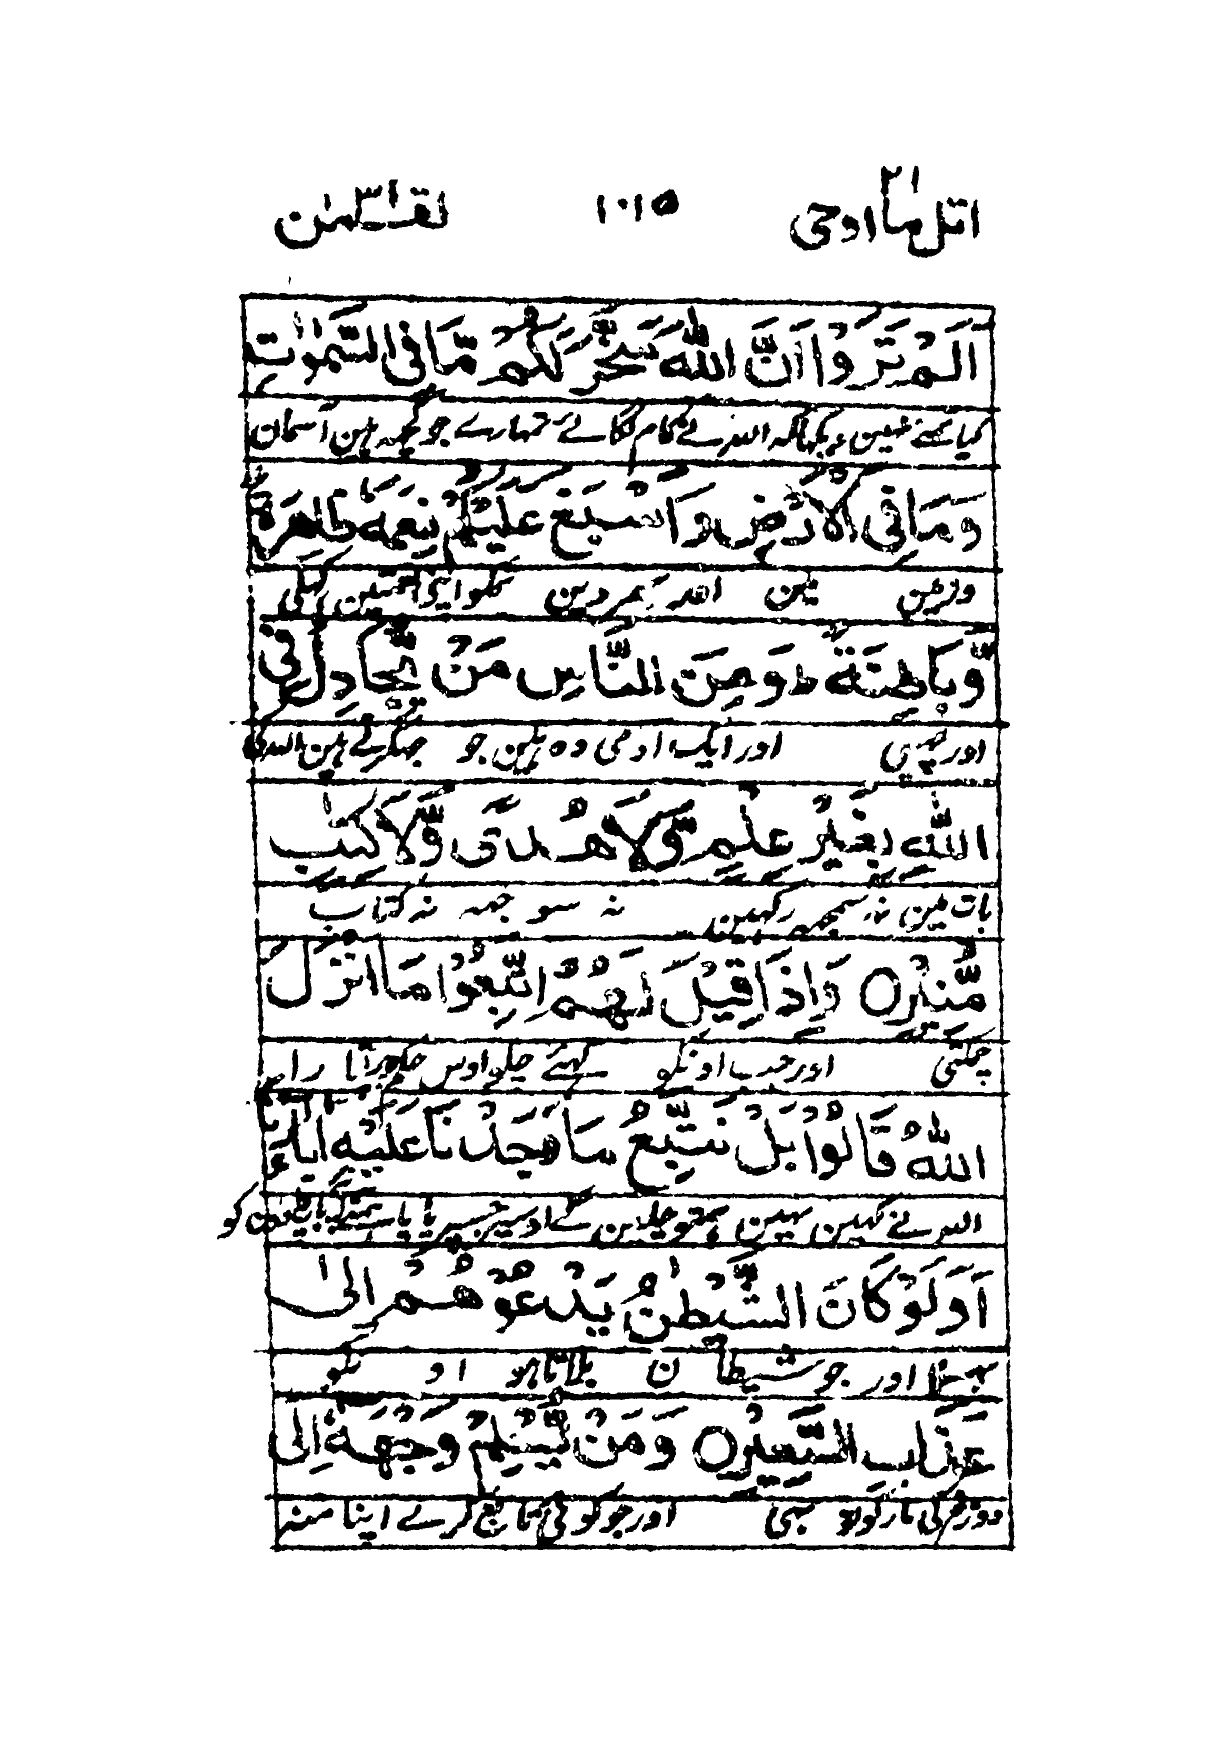 اتل ما اوحی ٢١ ١٠١٥ لقمٰن ٣١
اَلَمْ تَرَوْا اَنَّ اللّٰهَ سَخَّرَ لَكُمْ مَّا فِی السَّمٰوٰتِ
کیا تمنے نہین دیکھا کہ اللہ نے کام لگائے تمہارے جو کچھہ ہین آسمان
وَمَا فِی الْاَرْضِ وَاَسْبَغَ عَلَیْكُمْ نِعَمَهٗ ظَاهِرَةً
وزمین مین اور بھر دین تمکو اپنی نعمتین کھلی
وَّبَاطِنَةً ط وَمِنَ النَّاسِ مَنْ یُّجَادِلُ فِی
اور چھپی اور ایک آدمی وہ ہین جو جھگڑتے ہین اللہ کی
اللّٰهِ بِغَیْرِ عِلْمٍ وَّلَا هُدًی وَّلَا كِتٰبٍ
بات مین نہ سمجھہ رکھین نہ سوجھہ نہ کتاب
مُّنِیْرٍ ○ وَاِذَا قِیْلَ لَهُمُ اتَّبِعُوْا مَا اَنْزَلَ
چمکتی اور جب اونکو کہئے چلو اوس حکم پر جو اتارا
اللّٰهُ قَالُوْا بَلْ نَتَّبِعُ مَا وَجَدْنَا عَلَیْهِ اٰبَآءَنَا
اللہ نے کہین نہین ہمتو چلین گے اوسپر جسپر پایا ہمنے اپنے باپ دادون کو
اَوَلَوْ كَانَ الشَّیْطٰنُ یَدْعُوْهُمْ اِلٰی
بھلا اور جو شیطان بلاتا ہو اونکو
عَذَابِ السَّعِیْرِ ○ وَمَنْ یُّسْلِمْ وَجْهَهٗ اِلَی
دوزخ کی مار کو تو بھی اور جو کوئی تابع کرے اپنا منہ